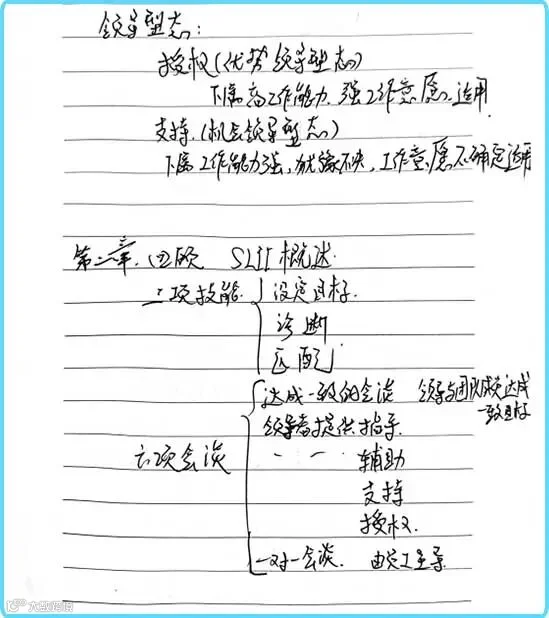 领导型态:
授权(优势领导型态)
下属高工作能力、强工作意愿、适用
支持(机会领导型态)
下属工作能力强,犹豫不决,工作意愿不确定适用
第三章. 回顾 SLII 概述.
三项技能. 设定目标.
诊断
匹配
达成一致的会谈 领导与团队成员达成一致目标
领导者提供 指导.
六项会谈 - - 辅助
支持
授权.
一对一会谈. 由员工主导.